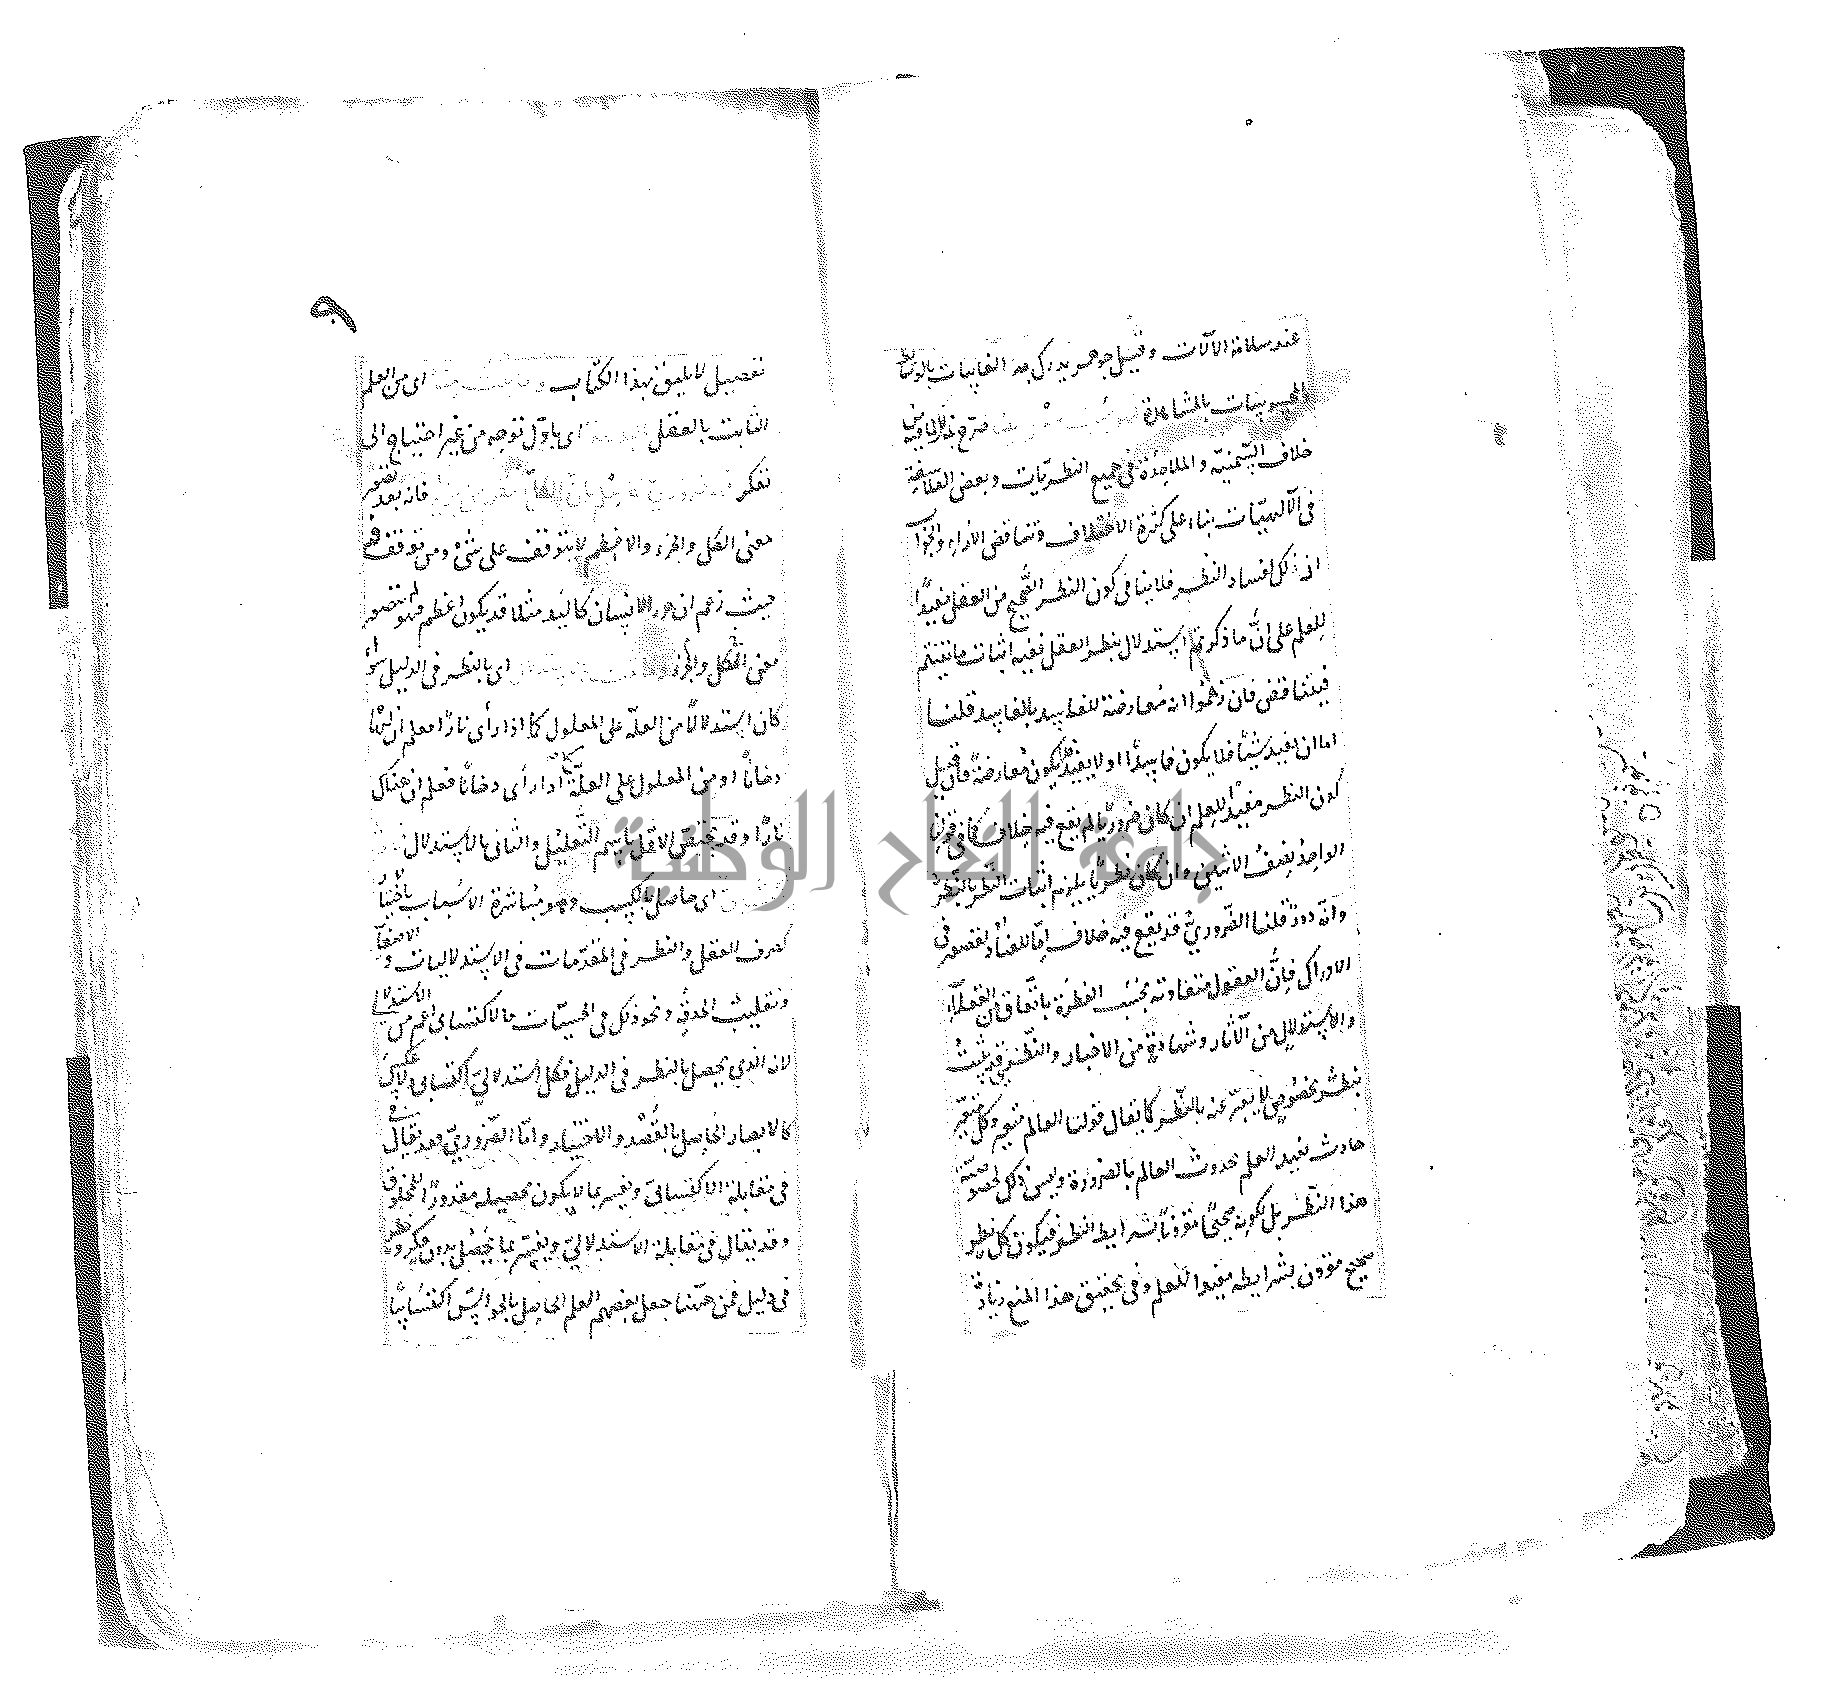 عند سلامة الآلات وقيل جوهر يدرك به الغايبات بالوسائط
والمحسوسات بالمشاهدة صرح بذلك لما فيه من
خلاف السمنيّة والملاحدة في جميع النظريّات وبعض الفلاسفة
في الآلهيّات بناء على كثرة الاختلاف وتناقض الاراء والجواب
ان ذلك لفساد النظر فلا ينافي كون النظر الصّحيح من العقل مفيدًا
للعلم على انّ ما ذكرتم استدلال بنظر العقل ففيه اثبات ما نفيتم
فيتناقض فان زعموا انه معارضة للفاسد بالفاسد قلنا
اما ان يفيد شيئًا فلا يكون فاسدًا او لا يفيد فلا يكون معارضة فان قيل
كون النظر مفيدًا للعلم ان كان ضروريًا لم يقع فيه خلاف كما في قولنا
الواحد نصف الاثنين وان كان نظريًا يلزم اثبات النّظر بالنّظر
وانّه دور قلنا الضّروريّ قد يقع فيه خلاف امّا لعناد او لقصور في
الادراك فانّ العقول متفاوتة بحسب الفطرة باتّفاق من العقلاء
والاستدلال من الآثار وشهادة من الاخبار والنّظريّ قد يثبت
بنظر مخصوص لا يعبّر عنه بالنّظر كما يقال قولنا العالم متغير وكل متغيّر
حادث يفيد العلم بحدوث العالم بالضرورة وليس ذلك لخصوصيّة
هذا النّظر بل لكونه صحيحًا مقرونًا بشرايط النظر فيكون كل نظر
صحيح مقرون بشرايطه مفيدا للعلم وفي تحقيق هذا المنع زيادة
٩
تفصيل لا يليق بهذا الكتاب وما ثبت منه اى من العلم
الثابت بالعقل اى باوّل توجه من غير احتياج الى
تفكر فانه بعد تصور
معنى الكل والجزء والاعظم لا يتوقف على شئ ومن توقف فيه
حيث زعم ان جزء الانسان كاليد مثلا قد يكون اعظم فهو لم يتصور
معنى الكل والجزء اى بالنظر في الدليل سواء
كان استدلالًا من العلّة على المعلول كما اذا رأى نارًا فعلم ان لها
دخانًا او من المعلول على العلّة كما اذا رأى دخانًا فعلم ان هناك
نارًا وقد يختصّ الاوّل باسم التّعليل والثانى بالاستدلال
اى حاصل بالكسب وهو مباشرة الاسباب بالاختيار
كصرف العقل والنظر في المقدّمات في الاستدلاليات والاصغاء
وتقليب الحدقة ونحو ذلك في الحسيّات فالاكتسابى اعم من الاستدلالى
لانه الذى يحصل بالنظر في الدليل فكل استدلاليّ اكتسابى ولا عكس
كالابصار الحاصل بالقصد والاختيار وامّا الضّروريّ فقد يقال في
في مقابلة الاكتسابىّ ويفسر بما لا يكون تحصيله مقدورًا للمخلوق
وقد يقال في مقابلة الاستدلاليّ ويفسّر بما يحصل بدون فكر ونظر
في دليل فمن ههنا جعل بعضهم العلم الحاصل بالحواسّ اكتسابيًا
جامعة النجاح الوطنية